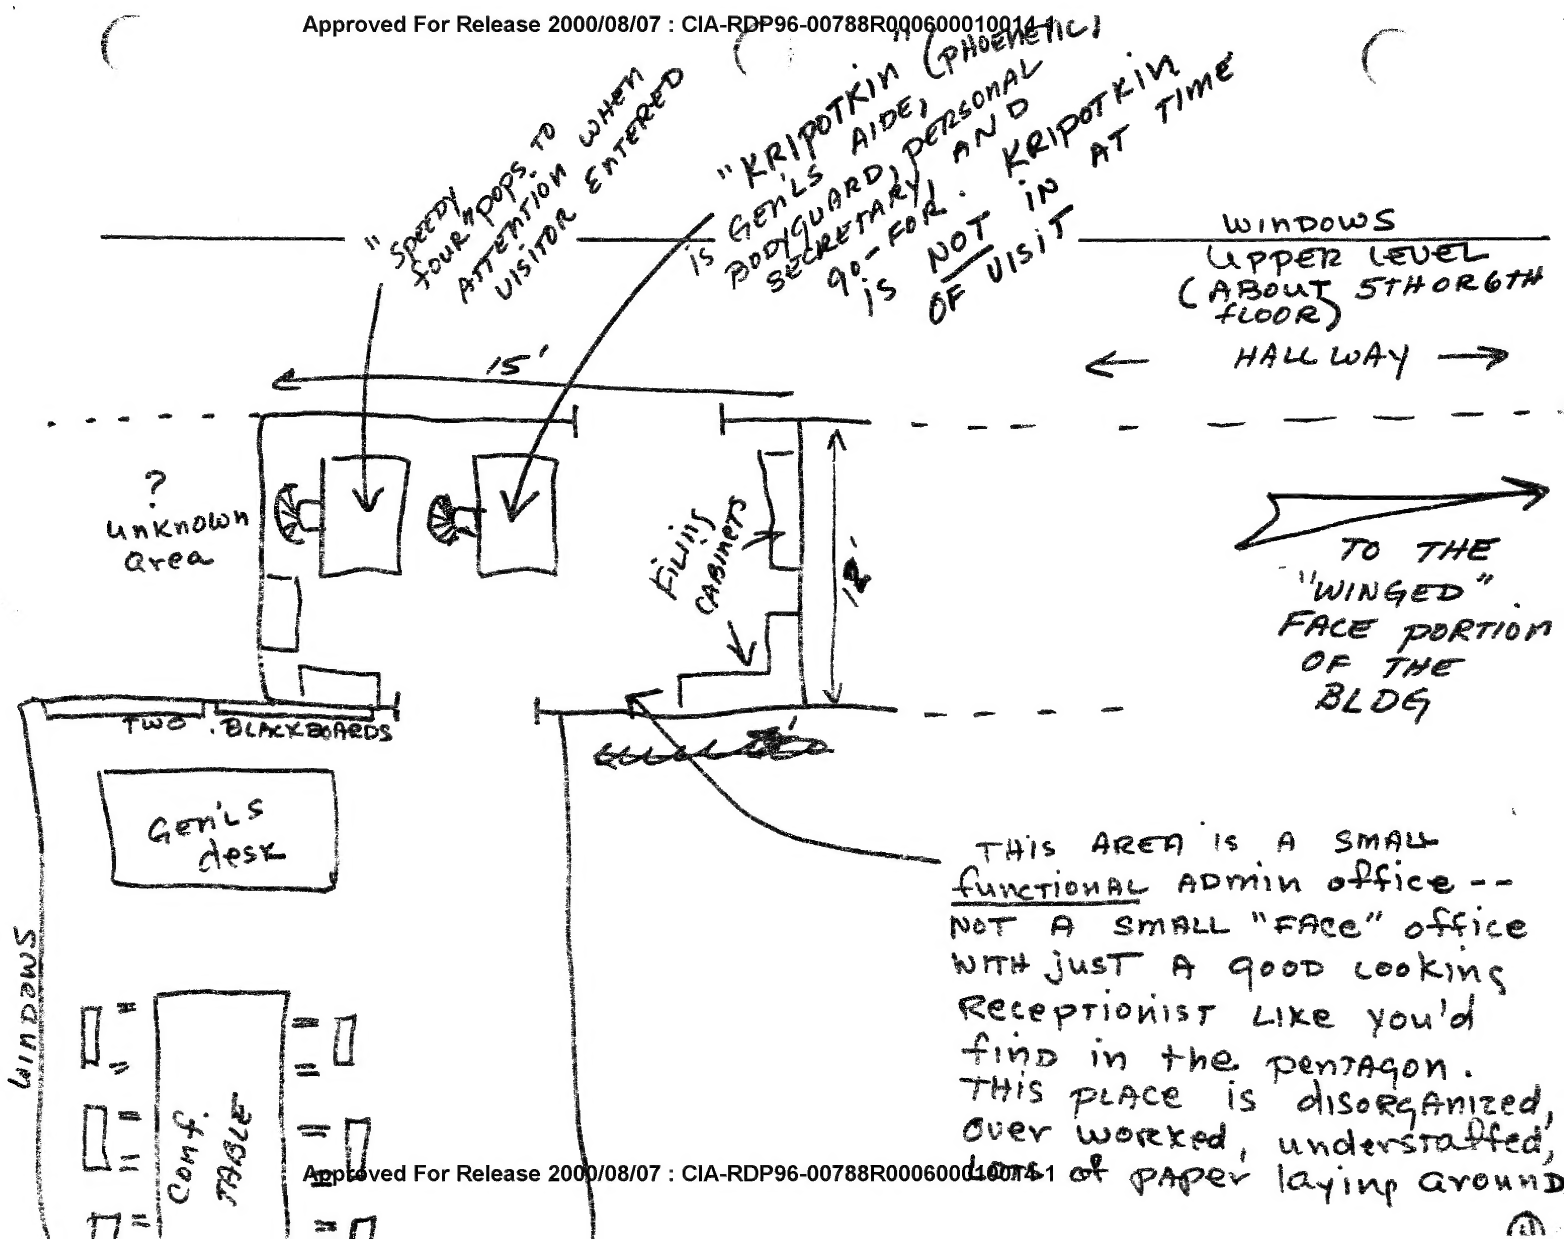 Approved For Release 2000/08/07 : CIA-RDP96-00788R000600010014-1
"SPEEDY
FOUR" POPS TO
ATTENTION WHEN
VISITOR ENTERED
"KRIPOTKIN" (PHOENETIC)
is GEN'LS AIDE,
BODYGUARD, PERSONAL
SECRETARY, AND
go-FOR. KRIPOTKIN
is NOT IN AT TIME
OF VISIT
WINDOWS
UPPER LEVEL
(ABOUT 5TH OR 6TH
FLOOR)
HALLWAY
15'
?
unknown
area
FILING
CABINETS
TO THE
"WINGED"
FACE PORTION
OF THE
BLDG
TWO BLACKBOARDS
GEN'LS
desk
WINDOWS
THIS AREA is A SMALL
functionAL ADmin office --
NOT A SMALL "FACE" office
WITH just A good Looking
RECEPTIONIST LIKE you'd
find in the PENTAGON.
THIS PLACE is disorganized,
over worked, understaffed,
Lots of PAPER laying around
Conf.
TABLE
Approved For Release 2000/08/07 : CIA-RDP96-00788R000600010014-1